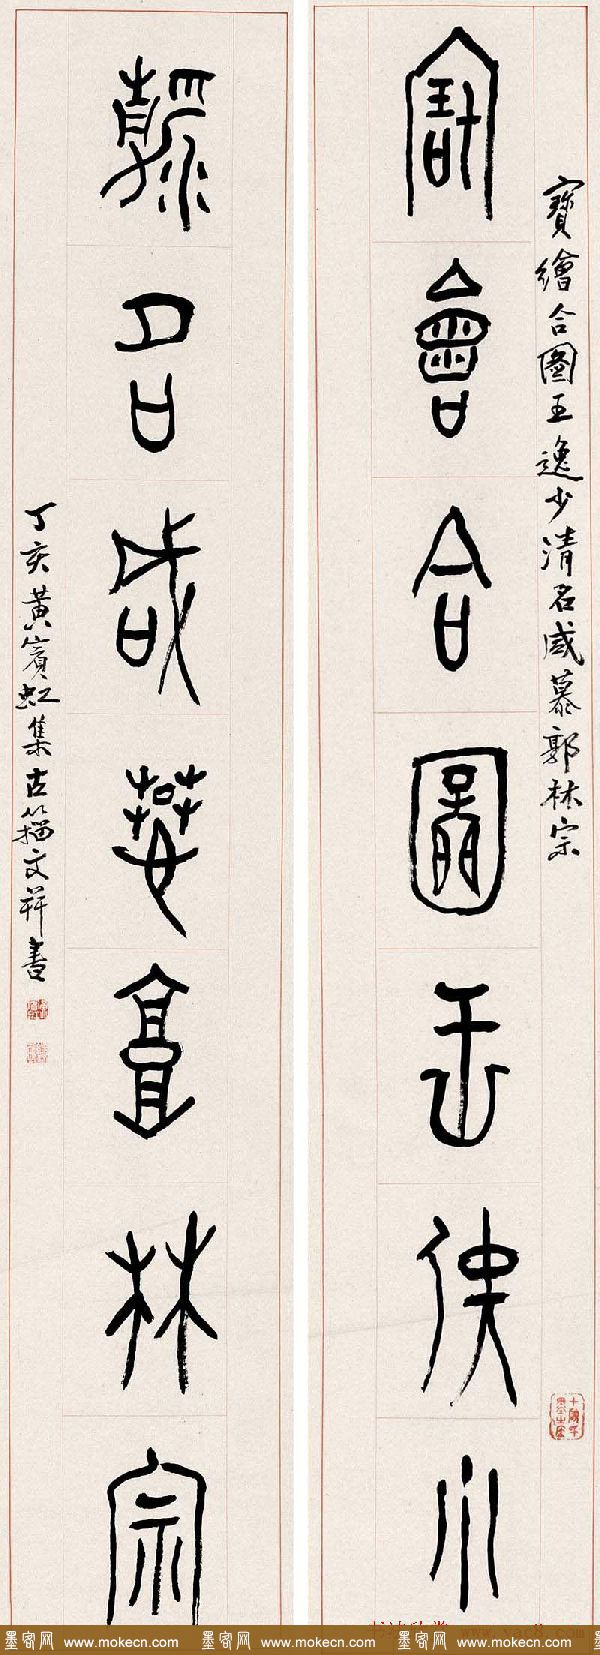 寶繪合圖王逸少清名咸慕郭林宗
寶會合圖王逸少
清名咸慕郭林宗
丁亥黃賓虹集古籀文并書
书法欣赏 www.yac8.com
墨客网 www.mokecn.com 墨客网 www.mokecn.com 墨客网 www.mokecn.com